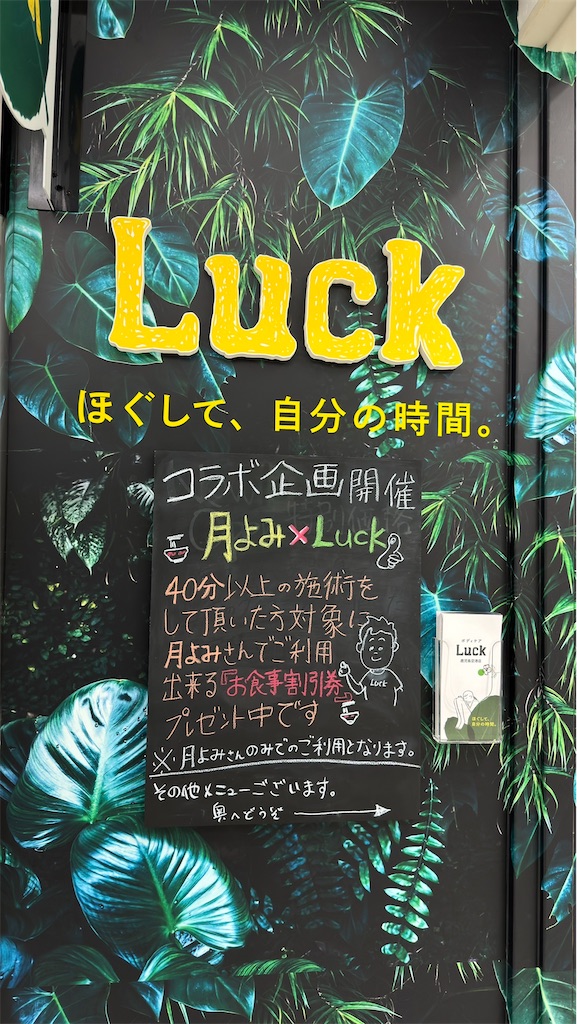 Luck
ほぐして、自分の時間。
コラボ企画開催
月よみ×Luck
40分以上の施術を
して頂いた方対象に
月よみさんでご利用
出来る『お食事割引券』
プレゼント中です
Luck
※月よみさんのみでのご利用となります。
その他メニューございます。
奥へどうぞ
ボディケア
Luck
ほぐして、
自分の時間。